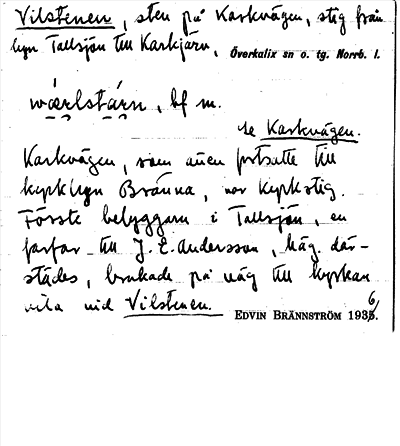 Vilstenen, sten på Karkvägen, stig från
byn Tallsjön till Karktjärn, Överkalix sn o. tg. Norrb. l.
wárlstárn, bf m.
se Karkvägen.
Karkvägen, som även fortsatte till
kyrkbyn Brånna, var kyrkstig.
Förste bebyggarn i Tallsjön, en
farfar till J. E. Andersson, häg. där-
städes, brukade på väg till kyrkan
vila vid Vilstenen. EDVIN BRÄNNSTRÖM 1936.